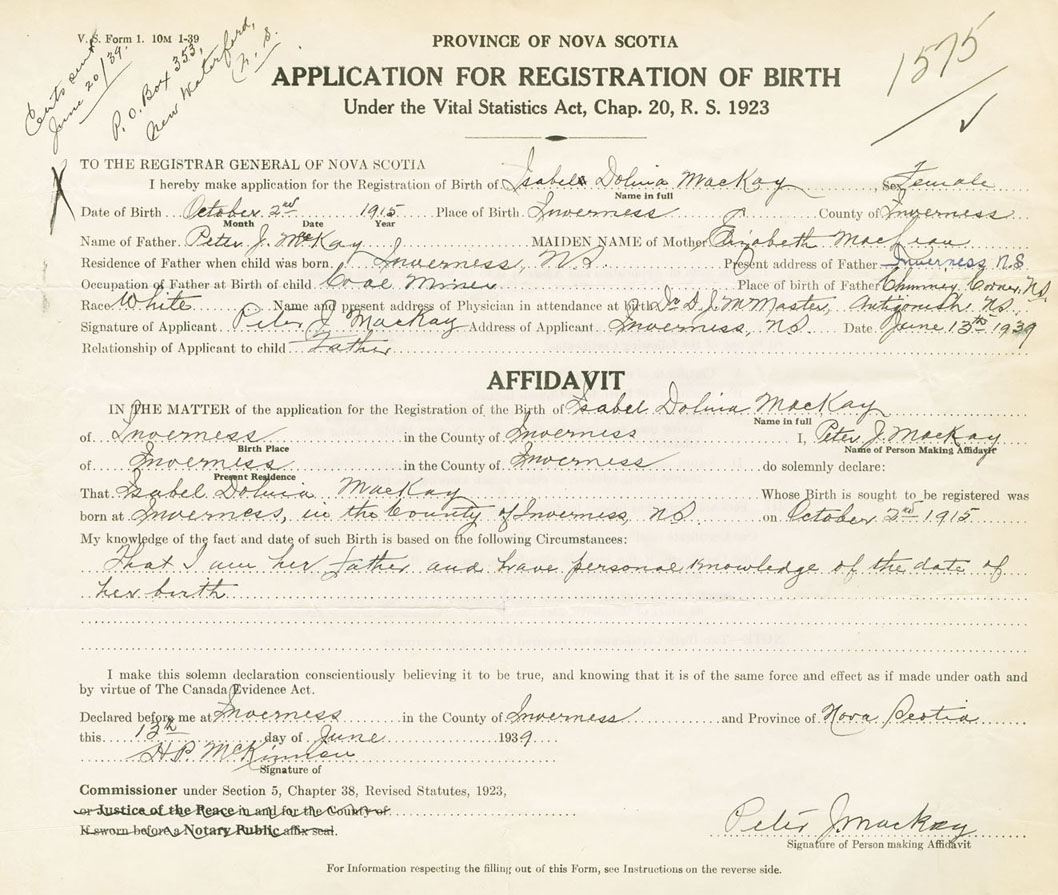 V. S. Form 1. 10M 1-39
June 20/39.
P. O. Box 353,
New Waterford,
N. S.
1575
PROVINCE OF NOVA SCOTIA
APPLICATION FOR REGISTRATION OF BIRTH
Under the Vital Statistics Act, Chap. 20, R. S. 1923
TO THE REGISTRAR GENERAL OF NOVA SCOTIA
I hereby make application for the Registration of Birth of Isabel Dolina MacKay, Sex Female
Name in full
Date of Birth October 2nd 1915 Place of Birth Inverness County of Inverness
Month Date Year
Name of Father Peter J. McKay MAIDEN NAME of Mother Elizabeth MacLean
Residence of Father when child was born Inverness, N.S. Present address of Father Inverness N.S.
Occupation of Father at Birth of child Coal Miner Place of birth of Father Chimney Corner, N.S.
Race White Name and present address of Physician in attendance at birth Dr. D. J. McMaster, Antigonish N.S.
Signature of Applicant Peter J. MacKay Address of Applicant Inverness, N.S. Date June 13th 1939
Relationship of Applicant to child Father
AFFIDAVIT
IN THE MATTER of the application for the Registration of the Birth of Isabel Dolina MacKay
Name in full
of Inverness in the County of Inverness I, Peter J. MacKay
Birth Place Name of Person Making Affidavit
of Inverness in the County of Inverness do solemnly declare:
Present Residence
That Isabel Dolina MacKay Whose Birth is sought to be registered was
born at Inverness, in the County of Inverness, N.S. on October 2nd 1915
My knowledge of the fact and date of such Birth is based on the following Circumstances:
That I am her father and have personal knowledge of the date of
her birth
I make this solemn declaration conscientiously believing it to be true, and knowing that it is of the same force and effect as if made under oath and
by virtue of The Canada Evidence Act.
Declared before me at Inverness in the County of Inverness and Province of Nova Scotia
this 13th day of June 1939
H.P. McKinnon
Signature of
Commissioner under Section 5, Chapter 38, Revised Statutes, 1923,
or Justice of the Peace in and for the County of
If sworn before a Notary Public affix seal.
Peter J. MacKay
Signature of Person making Affidavit
For Information respecting the filling out of this Form, see Instructions on the reverse side.